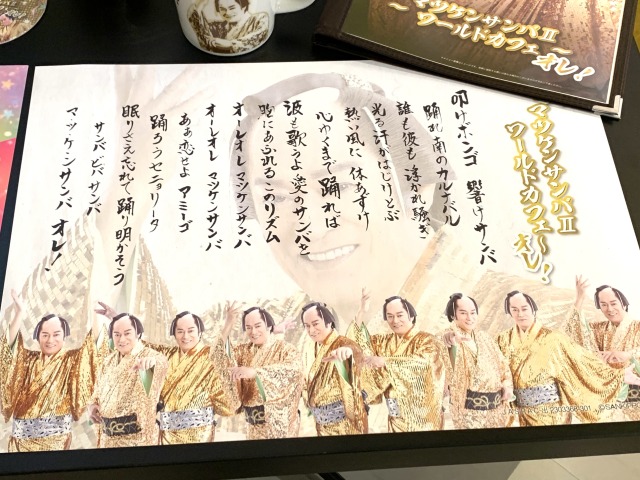 マツケンサンバⅡ～
～ワールドカフェ～
オレ！
マツケンサンバⅡ
ワールドカフェ～
オレ！
叩けボンゴ 響けサンバ
踊れ南のカルナバル
誰も彼も 浮かれ騒ぎ
光る汗がはじけとぶ
熱い風に 体あずけ
心ゆくまで踊れば
波も歌うよ 愛のサンバを
胸にあふれるこのリズム
オーレオレ マツケンサンバ
オーレオレ マツケンサンバ
ああ 恋せよ アミーゴ
踊ろうセニョリータ
眠りさえ忘れて踊り明かそう
サンバ ビバ サンバ
マツケンサンバ オレ！